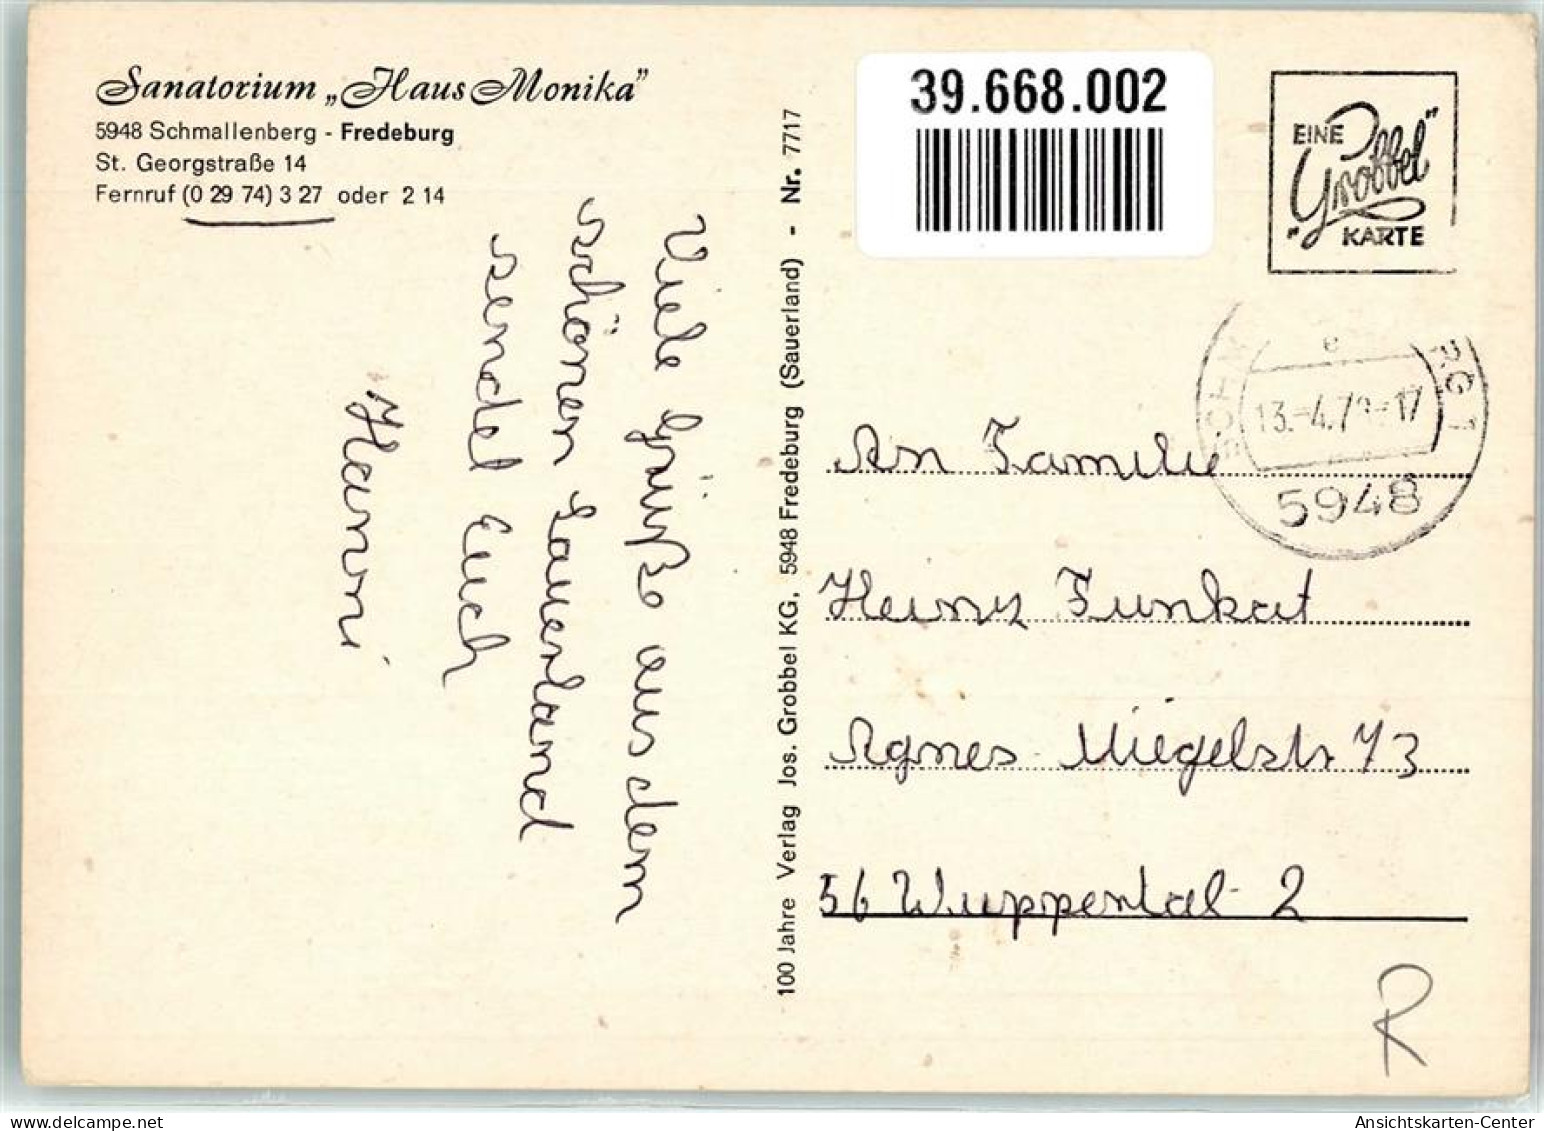 Sanatorium „Haus Monika”
5948 Schmallenberg - Fredeburg
St. Georgstraße 14
Fernruf (0 29 74) 3 27 oder 2 14
Viele Grüße aus dem
schönen Sauerland
sendet Euch
Hanni
100 Jahre Verlag Jos. Grobbel KG, 5948 Fredeburg (Sauerland) - Nr. 7717
39.668.002
EINE
„Grobbel”
KARTE
13.-4.7 -17
5948
An Familie
Heinz Funkat
Agnes-Miegelstr 73
56 Wuppertal-2
R
Ansichtskarten-Center